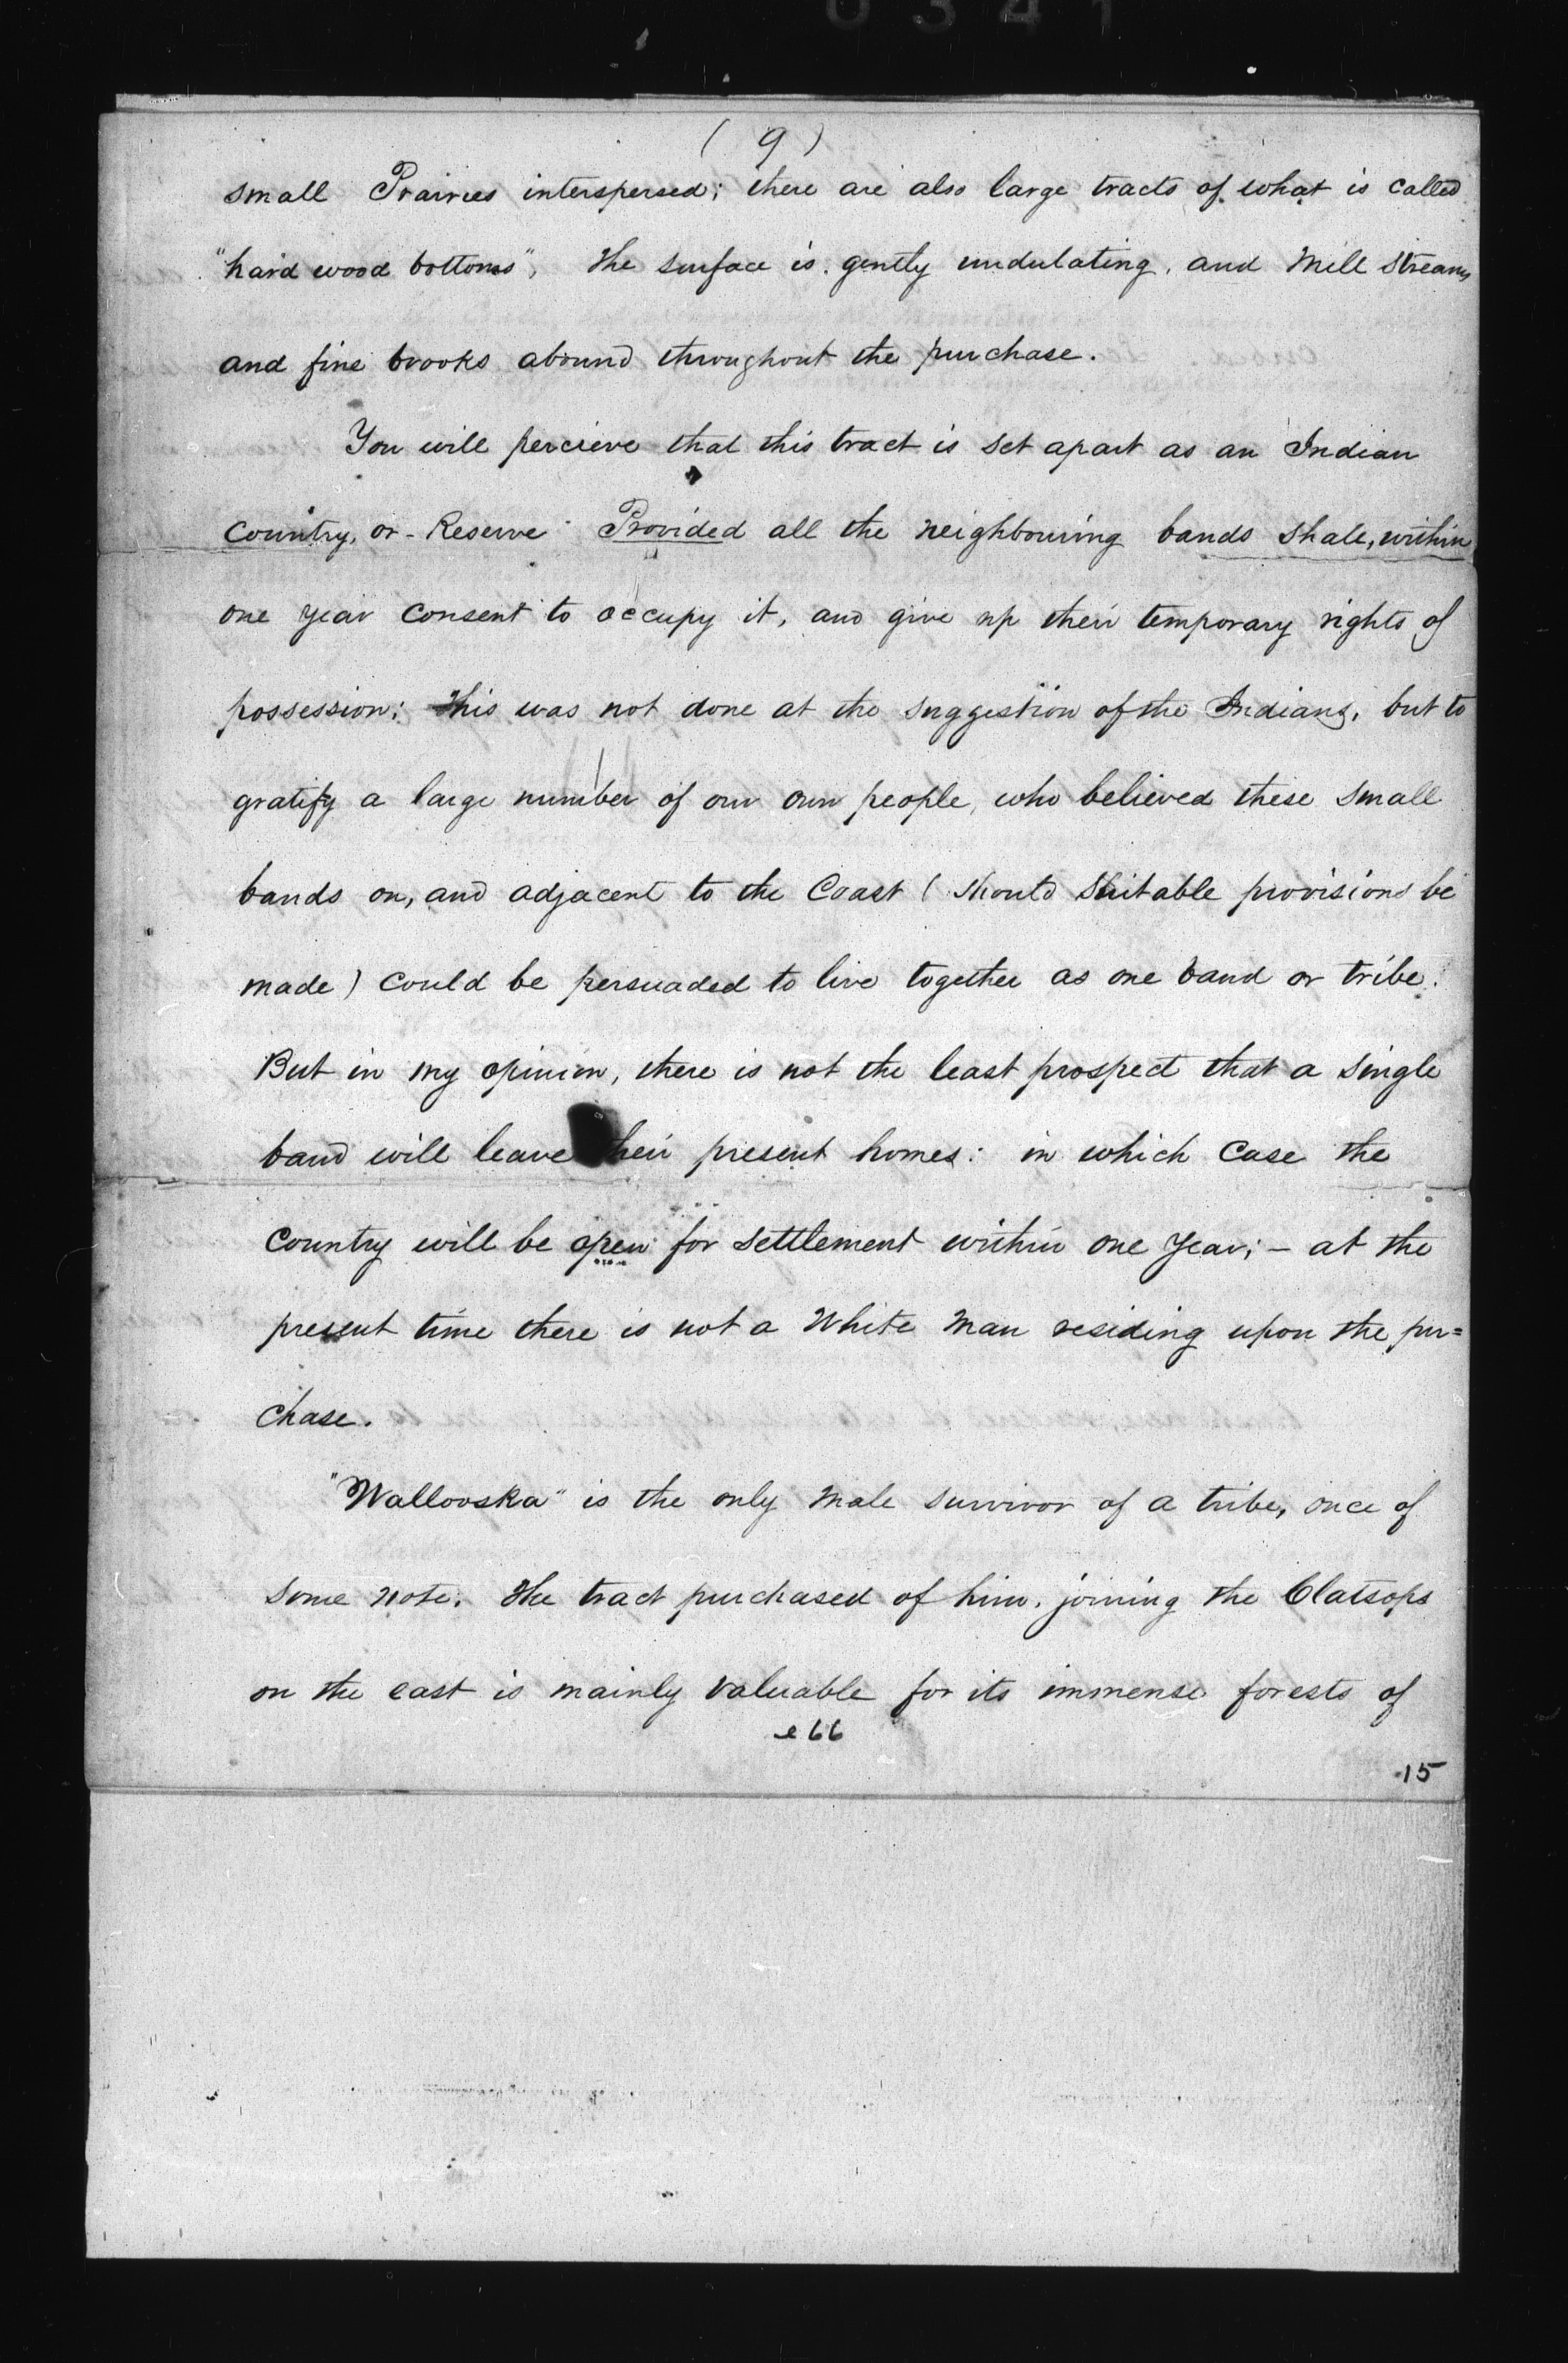 0341
( 9 )
small Prairies interspersed; there are also large tracts of what is called
"hard wood bottoms", The surface is gently undulating, and Mill Streams
and fine brooks abound throughout the purchase.
You will percieve that this tract is set apart as an Indian
Country, or - Reserve Provided all the neighbouring bands shall, within
one year consent to occupy it, and give up their temporary rights of
possession; This was not done at the suggestion of the Indians, but to
gratify a large number of our own people, who believed these small
bands on, and adjacent to the Coast ( should suitable provisions be
made ) could be persuaded to live together as one band or tribe.
But in my opinion, there is not the least prospect that a single
band will leave their present homes: in which case the
Country will be open for settlement within one year; - at the
present time there is not a White Man residing upon the pur=
chase.
"Wallooska" is the only male survivor of a tribe, once of
some note. The tract purchased of him, joining the Clatsops
on the east is mainly valuable for its immense forests of
e66
15